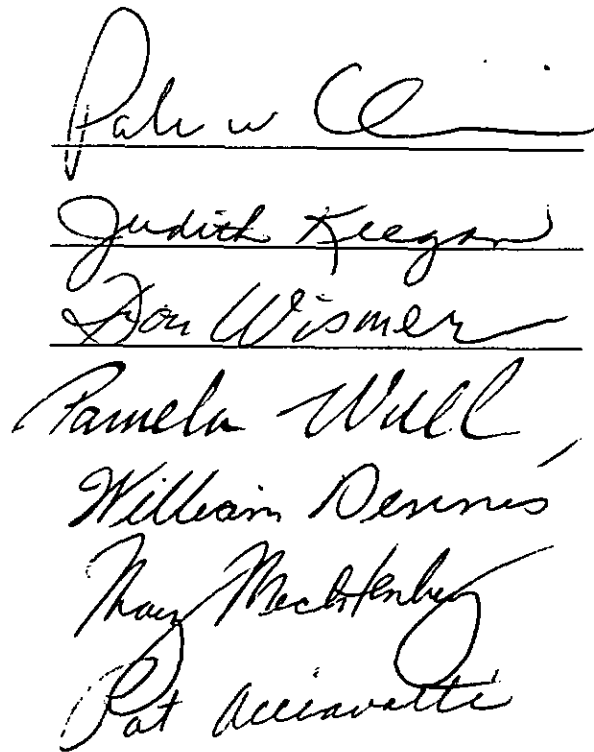 Judith Keegan
Don Wismer
Pamela Wall
William Dennis
Mary Mechtenberg
Pat Acciavatti